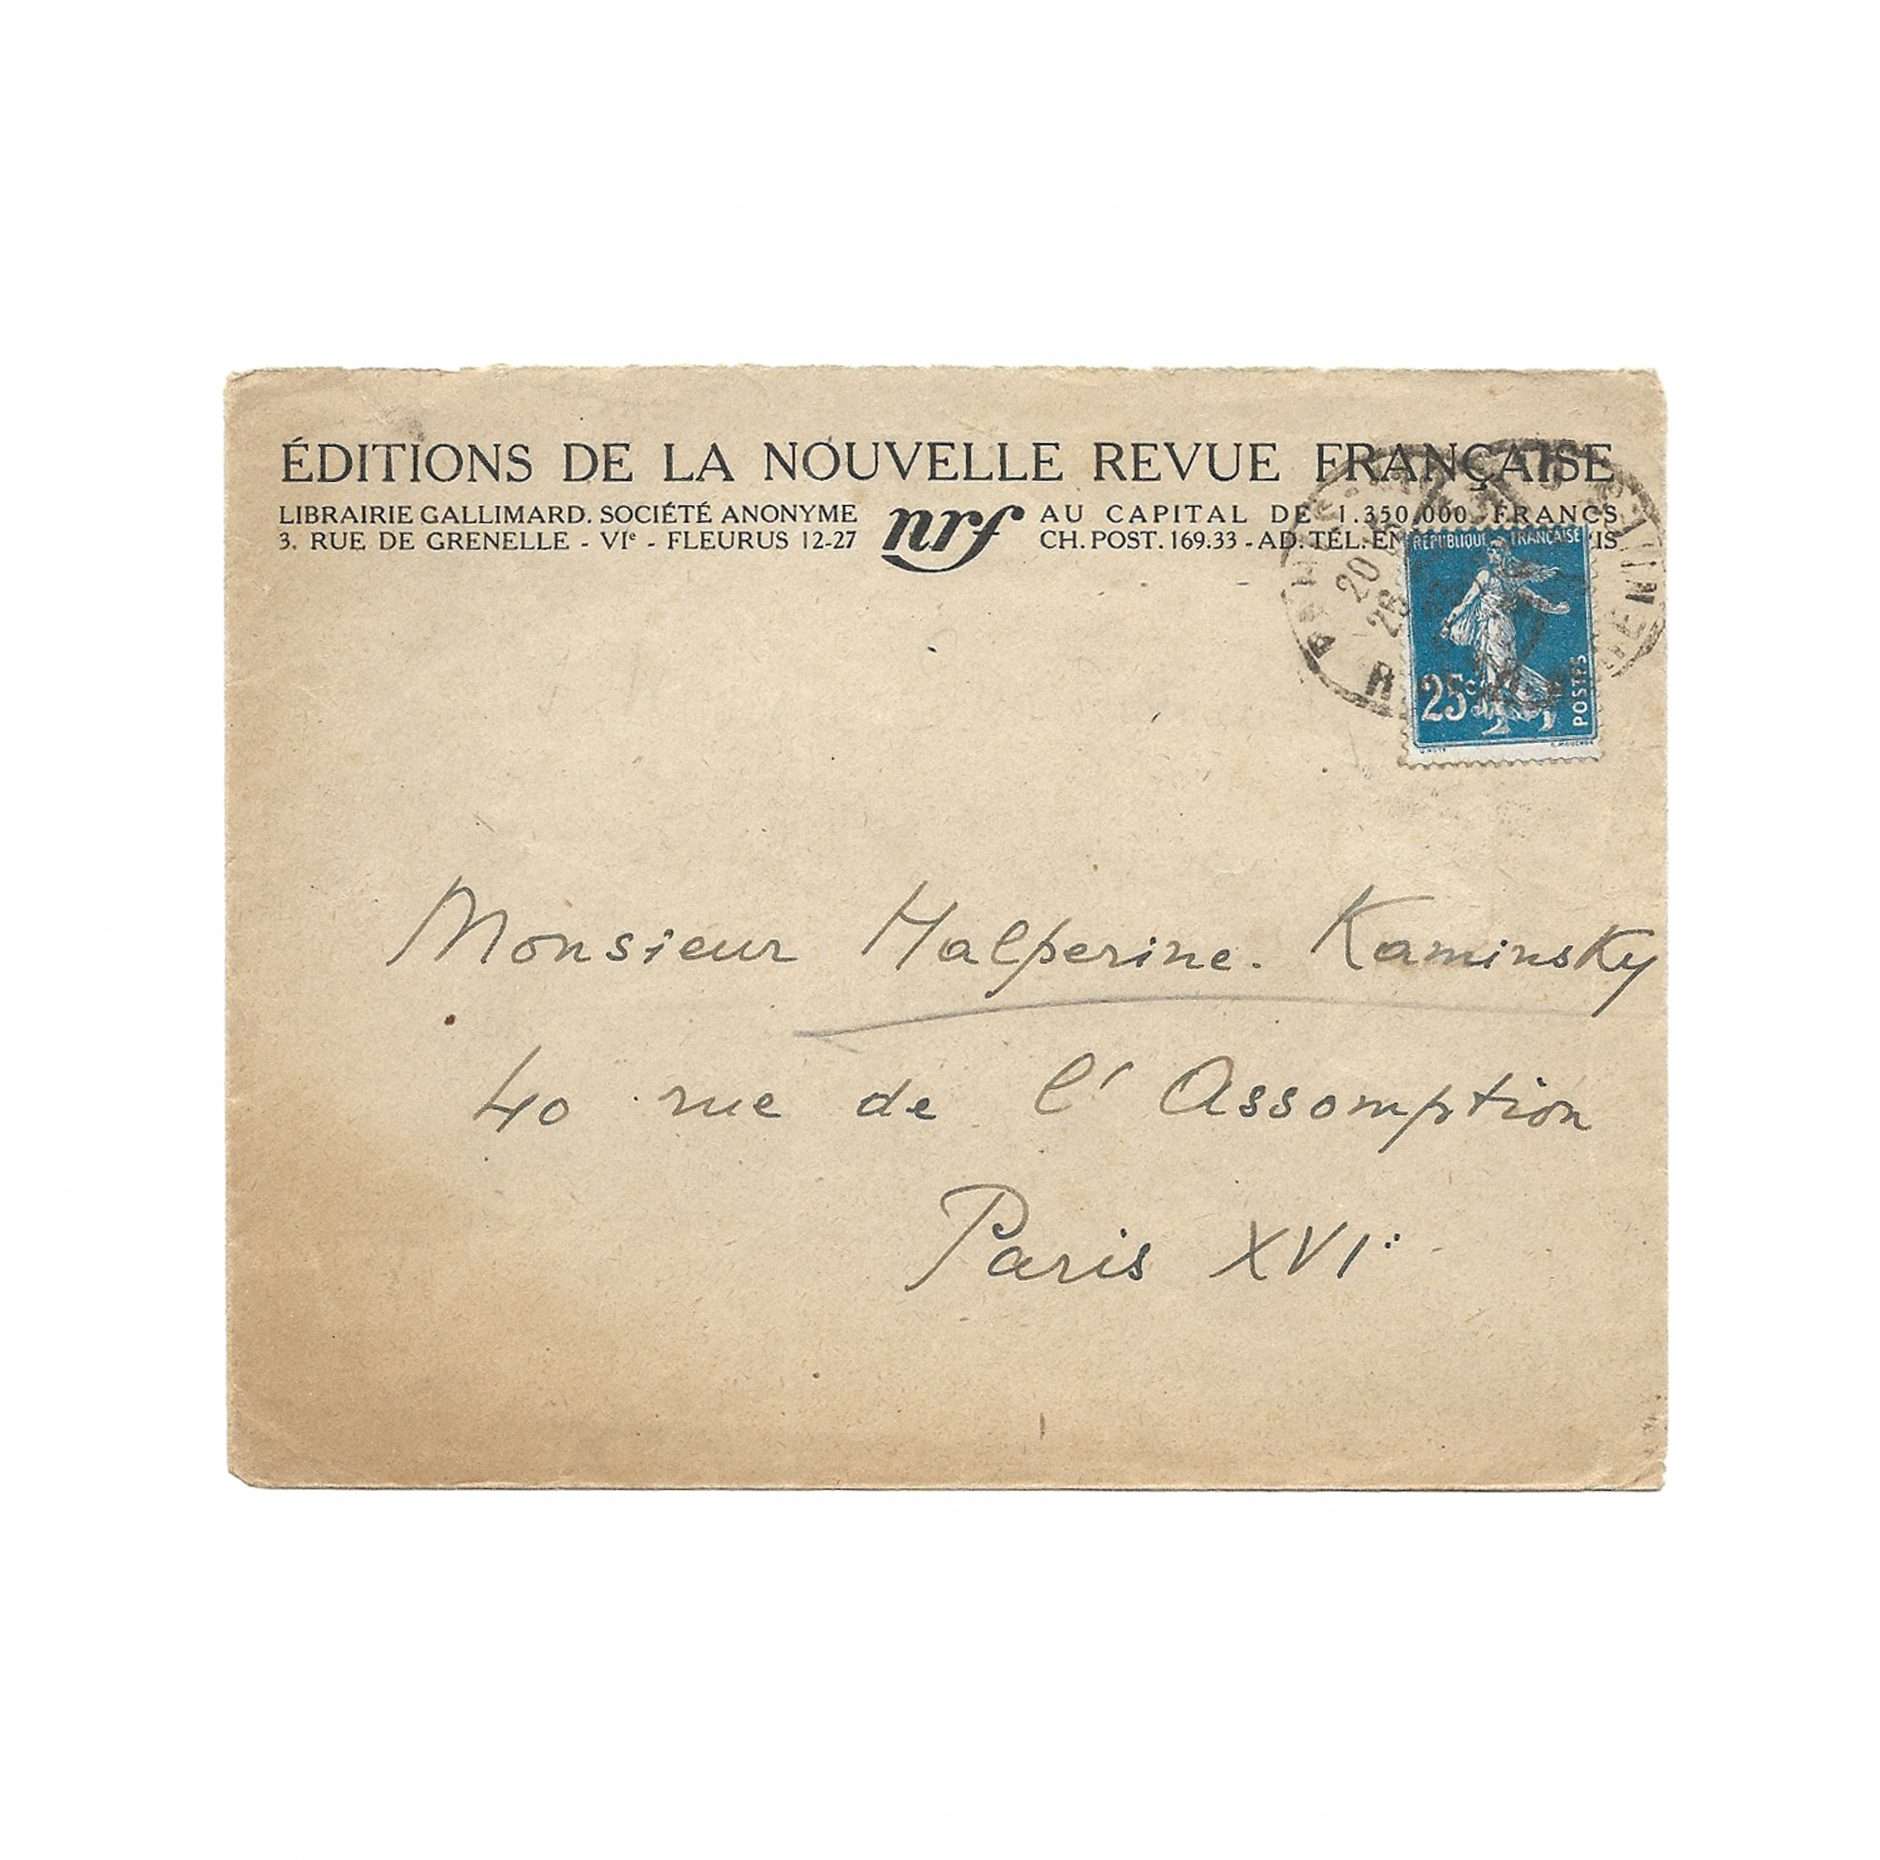 ÉDITIONS DE LA NOUVELLE REVUE FRANÇAISE
LIBRAIRIE GALLIMARD. SOCIÉTÉ ANONYME
3. RUE DE GRENELLE - VIe - FLEURUS 12-27
nrf
AU CAPITAL DE 1.350.000 FRANCS
CH. POST. 169.33 - AD. TÉL.
RÉPUBLIQUE FRANÇAISE
25c
POSTES
Monsieur Halperine. Kaminsky
40 rue de l'Assomption
Paris XVI